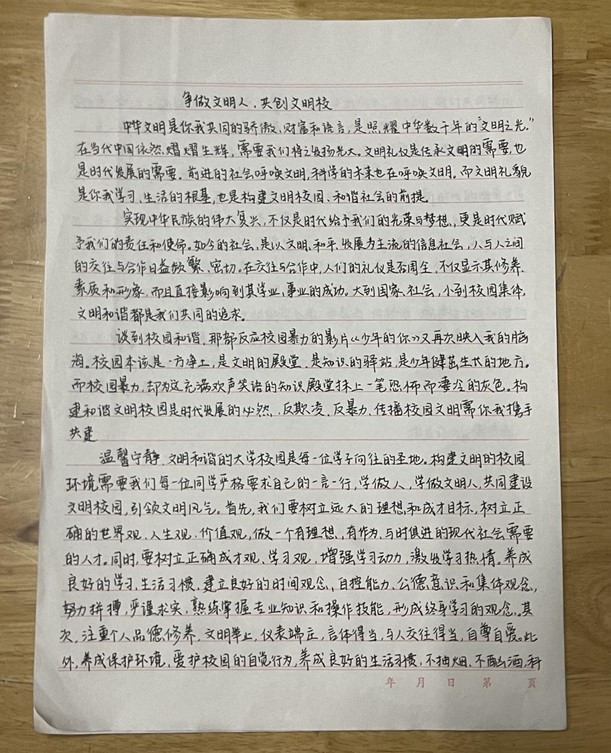 争做文明人，共创文明校
中华文明是你我共同的骄傲、财富和语言，是照耀中华数千年的“文明之光。”
在当代中国依然熠熠生辉，需要我们将之发扬光大。文明礼仪是传承文明的需要，也
是时代发展的需要。前进的社会呼唤文明，科学的未来也在呼唤文明，而文明礼貌
是你我学习、生活的根基，也是构建文明校园、和谐社会的前提。
实现中华民族的伟大复兴，不仅是时代给予我们的光荣与梦想，更是时代赋
予我们的责任和使命。如今的社会，是以文明、和平、发展为主流的信息社会，人与人之间
的交往与合作日益频繁、密切。在交往与合作中，人们的礼仪是否周全，不仅显示其修养、
素质和形象，而且直接影响到其学业、事业的成功。大到国家、社会，小到校园集体，
文明和谐都是我们共同的追求。
谈到校园和谐，那部反应校园暴力的影片《少年的你》又再次映入我的脑
海。校园本该是一方净土，是文明的殿堂，是知识的驿站，是少年健茁生长的地方。
而校园暴力，却为这充满欢声笑语的知识殿堂抹上一笔恐怖而凄冷的灰色。构
建和谐文明校园是时代发展的必然，反欺凌、反暴力，传播校园文明需你我携手
共建
温馨宁静、文明和谐的大学校园是每一位学子向往的圣地。构建文明的校园
环境需要我们每一位同学严格要求自己的一言一行，学做人，学做文明人，共同建设
文明校园，引领文明风气。首先，我们要树立远大的理想和成才目标，树立正
确的世界观、人生观、价值观，做一个有理想、有作为、与时俱进的现代社会需要
的人才。同时，要树立正确成才观、学习观，增强学习动力，激发学习热情。养成
良好的学习、生活习惯，建立良好的时间观念、自控能力、公德意识和集体观念，
努力拼搏，严谨求实，熟练掌握专业知识和操作技能，形成终身学习的观念。其
次，注重个人品德修养，文明举止，仪表端正，言体得当，与人交往得当，自尊自爱。此
外，养成保护环境，爱护校园的自觉行为，养成良好的生活习惯，不抽烟，不酗酒，科
年 月 日 第 頁